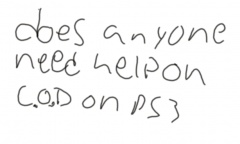 does anyone
need help on
C.O.D on PS3